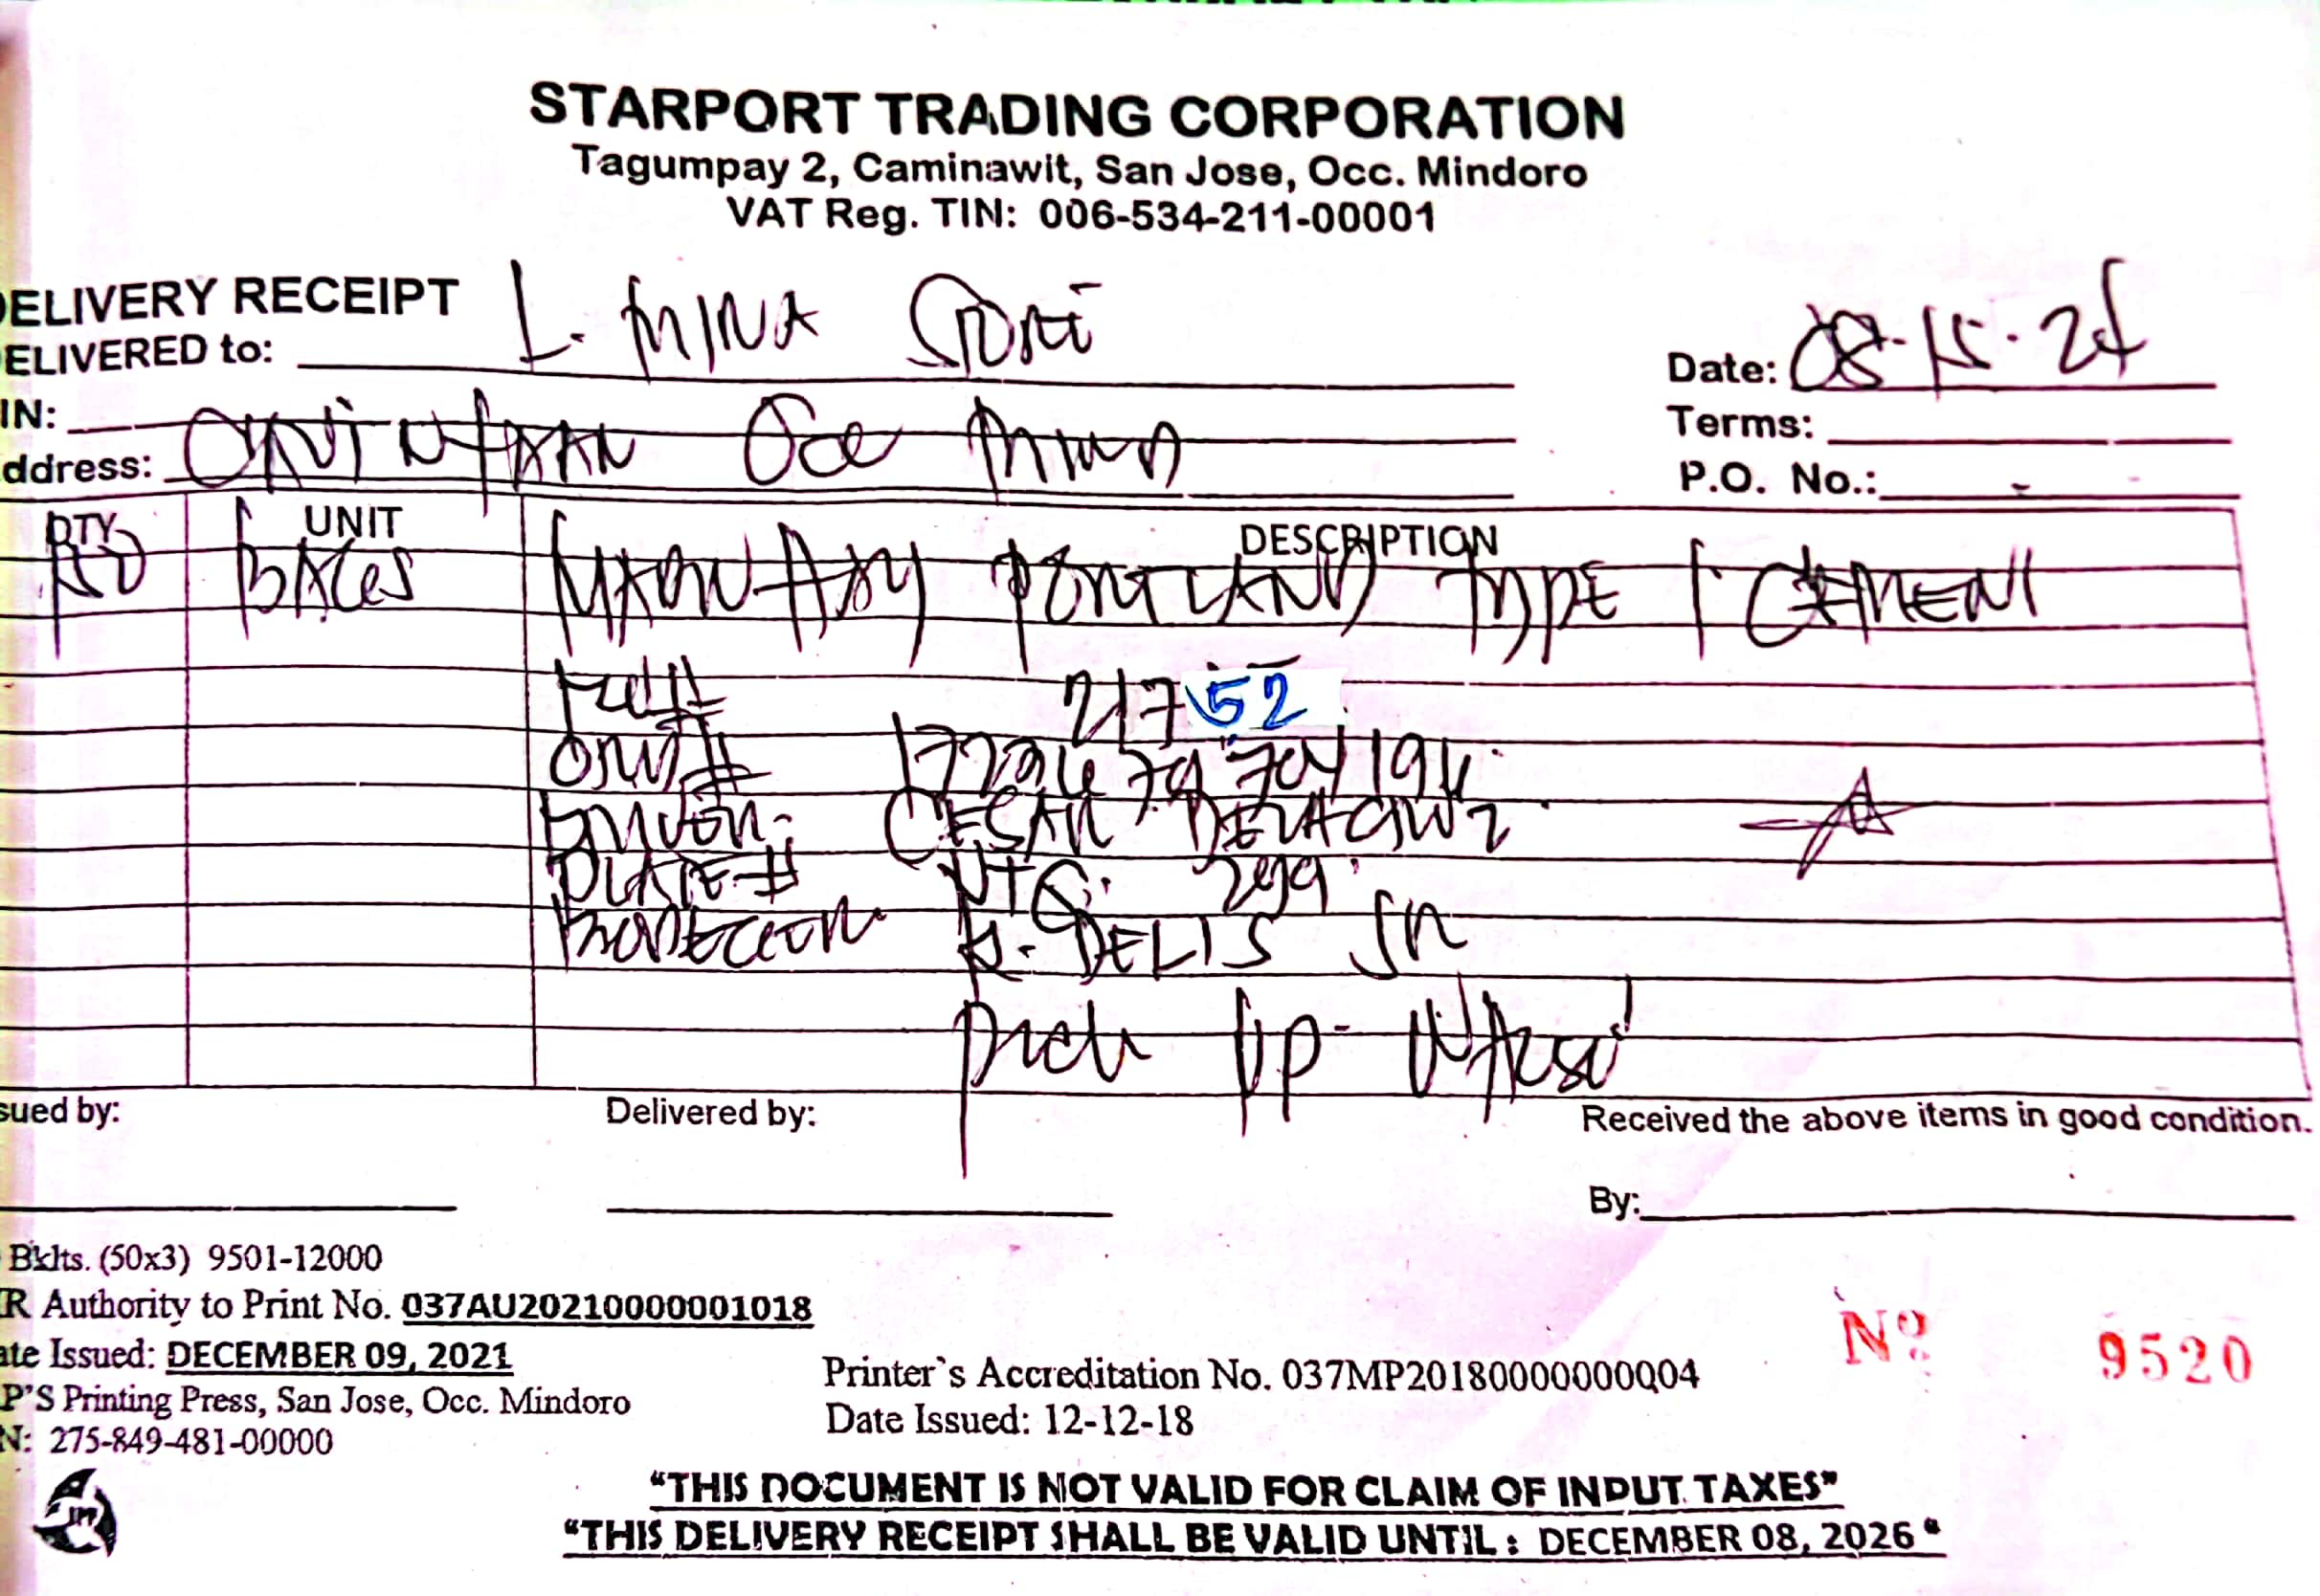 STARPORT TRADING CORPORATION
Tagumpay 2, Caminawit, San Jose, Occ. Mindoro
VAT Reg. TIN: 006-534-211-00001
DELIVERY RECEIPT
DELIVERED to: L. MINA STORE
Date: 08-15-24
IN:
Terms:
ddress: Occ
P.O. No.: -
QTY UNIT DESCRIPTION
BAGS PORTLAND TYPE 1 CEMENT
21752
DRIVER: CESAR DELACRUZ
PLATE# 299
R. DELIS JR
Pick up
sued by: Delivered by: Received the above items in good condition.
By:
Bklts. (50x3) 9501-12000
R Authority to Print No. 037AU20210000001018
ate Issued: DECEMBER 09, 2021
P'S Printing Press, San Jose, Occ. Mindoro
N: 275-849-481-00000
Printer's Accreditation No. 037MP20180000000004
Date Issued: 12-12-18
Nº 9520
"THIS DOCUMENT IS NOT VALID FOR CLAIM OF INPUT TAXES"
"THIS DELIVERY RECEIPT SHALL BE VALID UNTIL : DECEMBER 08, 2026"